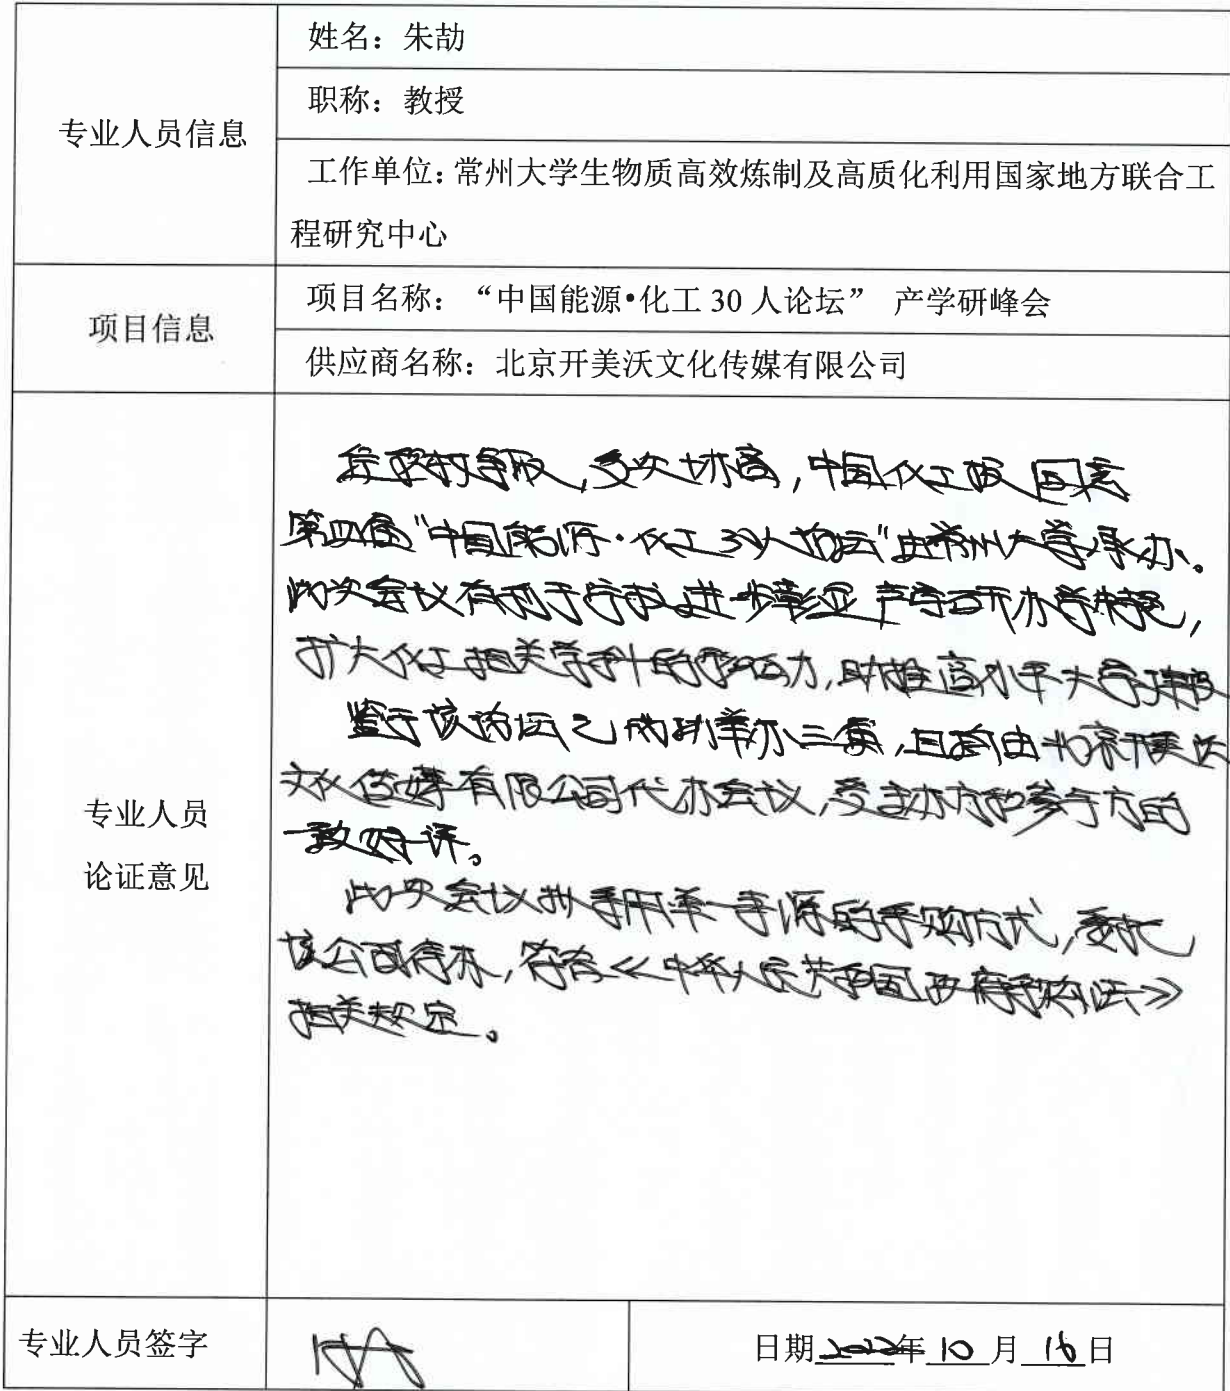 姓名：朱劼
职称：教授
专业人员信息
工作单位：常州大学生物质高效炼制及高质化利用国家地方联合工
程研究中心
项目名称：“中国能源•化工 30 人论坛” 产学研峰会
项目信息
供应商名称：北京开美沃文化传媒有限公司
争取，多次协商，中国化工报同意
第四届“中国能源·化工30人论坛”由常州大学承办。
此次会议有利于学校进一步彰显产学研办学特色，
扩大化工相关学科的影响力，助推高水平大学建设
鉴于该论坛已成功举办三届，且前由北京开美沃
文化传媒有限公司代办会议，受主办方和参与方的
一致好评。
专业人员
论证意见
此次会议拟采用单一来源的采购方式，委托
该公司承办，符合《中华人民共和国政府采购法》
相关规定。
专业人员签字
日期2022年10月16日